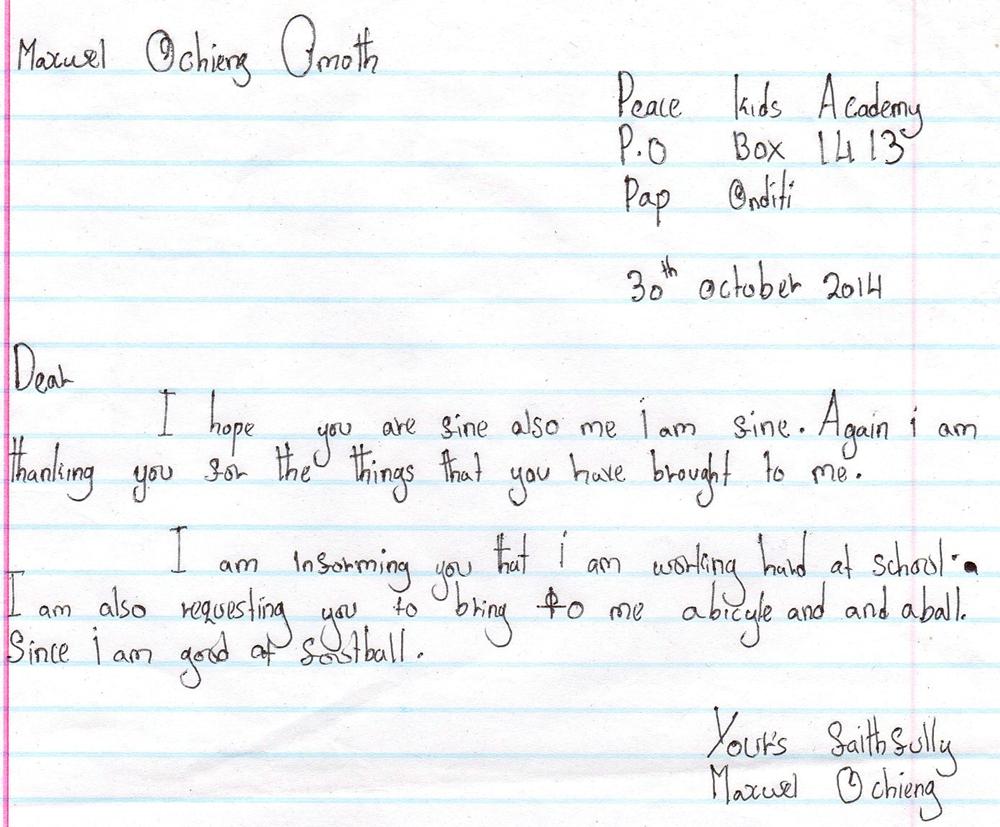 Maxwel Ochieng Omoth
Peace kids Academy
P.O Box 1413
Pap Onditi
30th october 2014
Dear
I hope you are fine also me i am fine. Again i am
thanking you for the things that you have brought to me.
I am informing you that i am working hard at school.
I am also requesting you to bring to me abicyle and and aball.
Since i am good at football.
Your's faithfully
Maxwel Ochieng